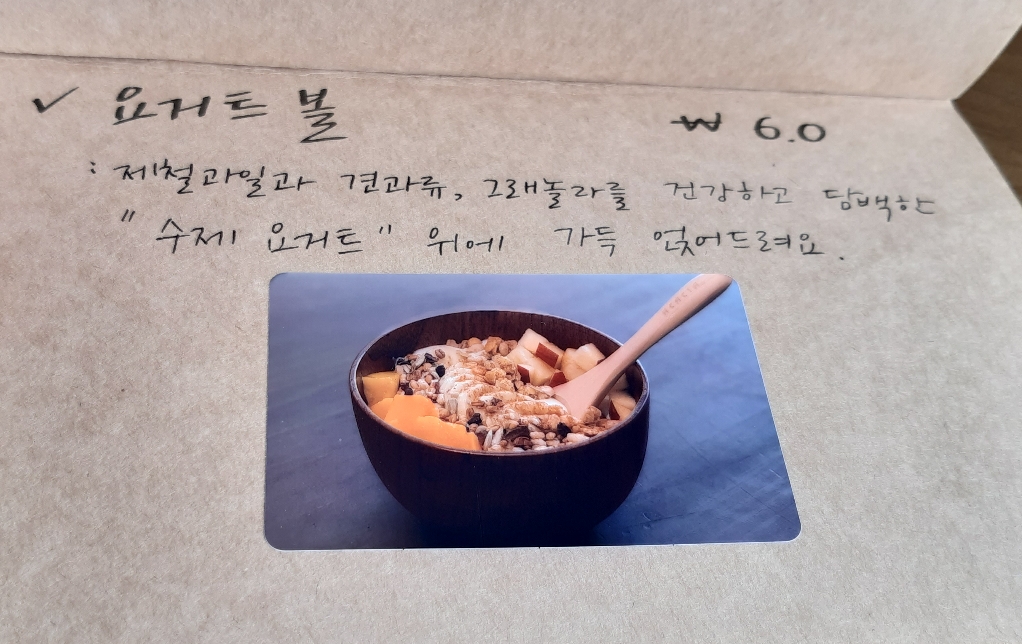 ✓ 요거트 볼 ₩ 6.0
: 제철과일과 견과류, 그래놀라를 건강하고 담백한
" 수제 요거트 " 위에 가득 얹어드려요.